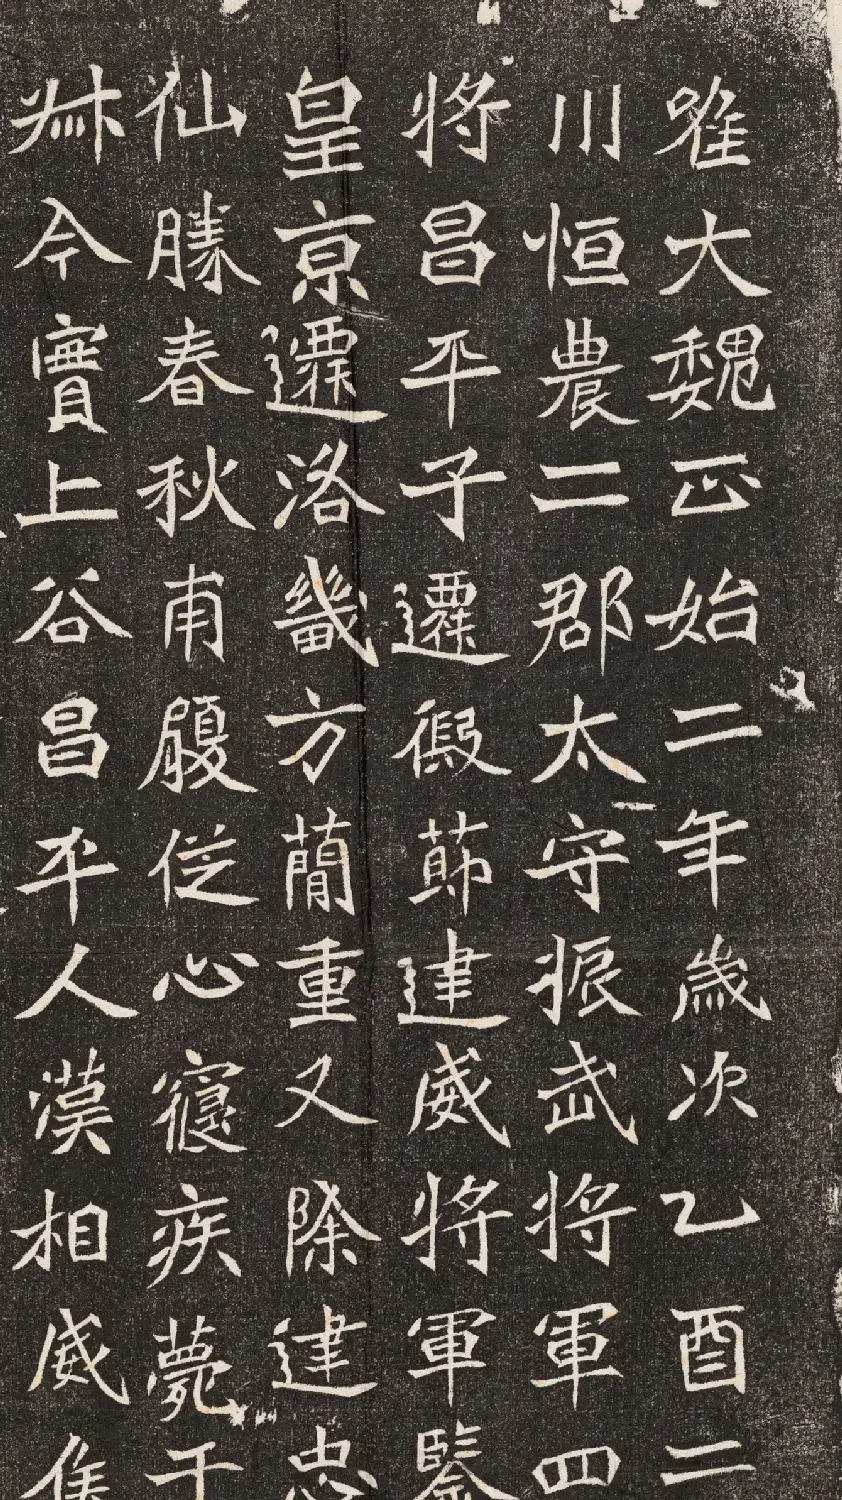 唯大魏正始二年歲次乙酉二
川恒農二郡太守振武將軍四
將昌平子遷假節建威將軍鑒
皇京遷洛畿方簡重又除建忠
仙勝春秋甫履從心寢疾薨于
州今實上谷昌平人漢相威侯